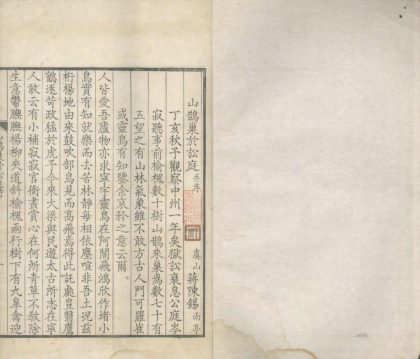 山鵲巢於訟庭 并序
虞山 蔣陳錫 雨亭
丁亥秋予觀察中州一年矣獄訟衰息公庭岑
寂聽事前榆槐數十樹山鵲來巢爲數七十有
五望之有山林氣象雖不敢方古人門可羅雀
或靈鳥有知鑒余哀矜之意云爾
人皆愛吾廬物亦求寧宇靈鳥在阿閣飛鴻欣作堵小
鳥實有知就樂而去苦林靜每相依塵喧非吾土况茲
桁楊地由來鼓吹部鳥見而高飛焉得此託處豈翳鷹
鸇逐苛政猛於虎予今來大梁與民道太古所志在寧
人敢云有小補寂寂官衙晝賞心在何所青草不敎除
生意鬱膴膴楊柳夾道斜榆槐兩行樹下有九臯禽迎